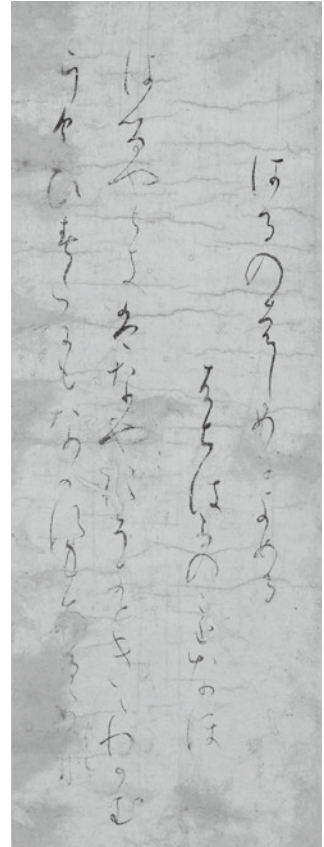 はるのはしめによめる
ふちはらのことなほ
はるやときはなやおそきときゝわかむ
うくひすたにもなかすもあるかな